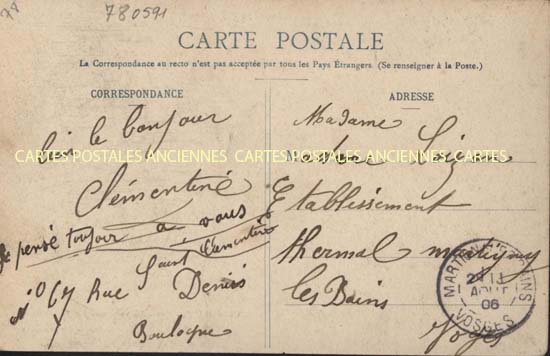 780591
CARTE POSTALE
La Correspondance au recto n'est pas acceptée par tous les Pays Étrangers. (Se renseigner à la Poste.)
CORRESPONDANCE
le bonjour
Clémentine
Je pense toujour a vous
Clementine
Saint
No 67 Rue Denis
Boulogne
ADRESSE
Madame
Etablissement
thermal martigny
les Bains
Vosges
MARTIGNY-LES-BAINS
AOUT
06
VOSGES
CARTES POSTALES ANCIENNES CARTES POSTALES ANCIENNES CARTES